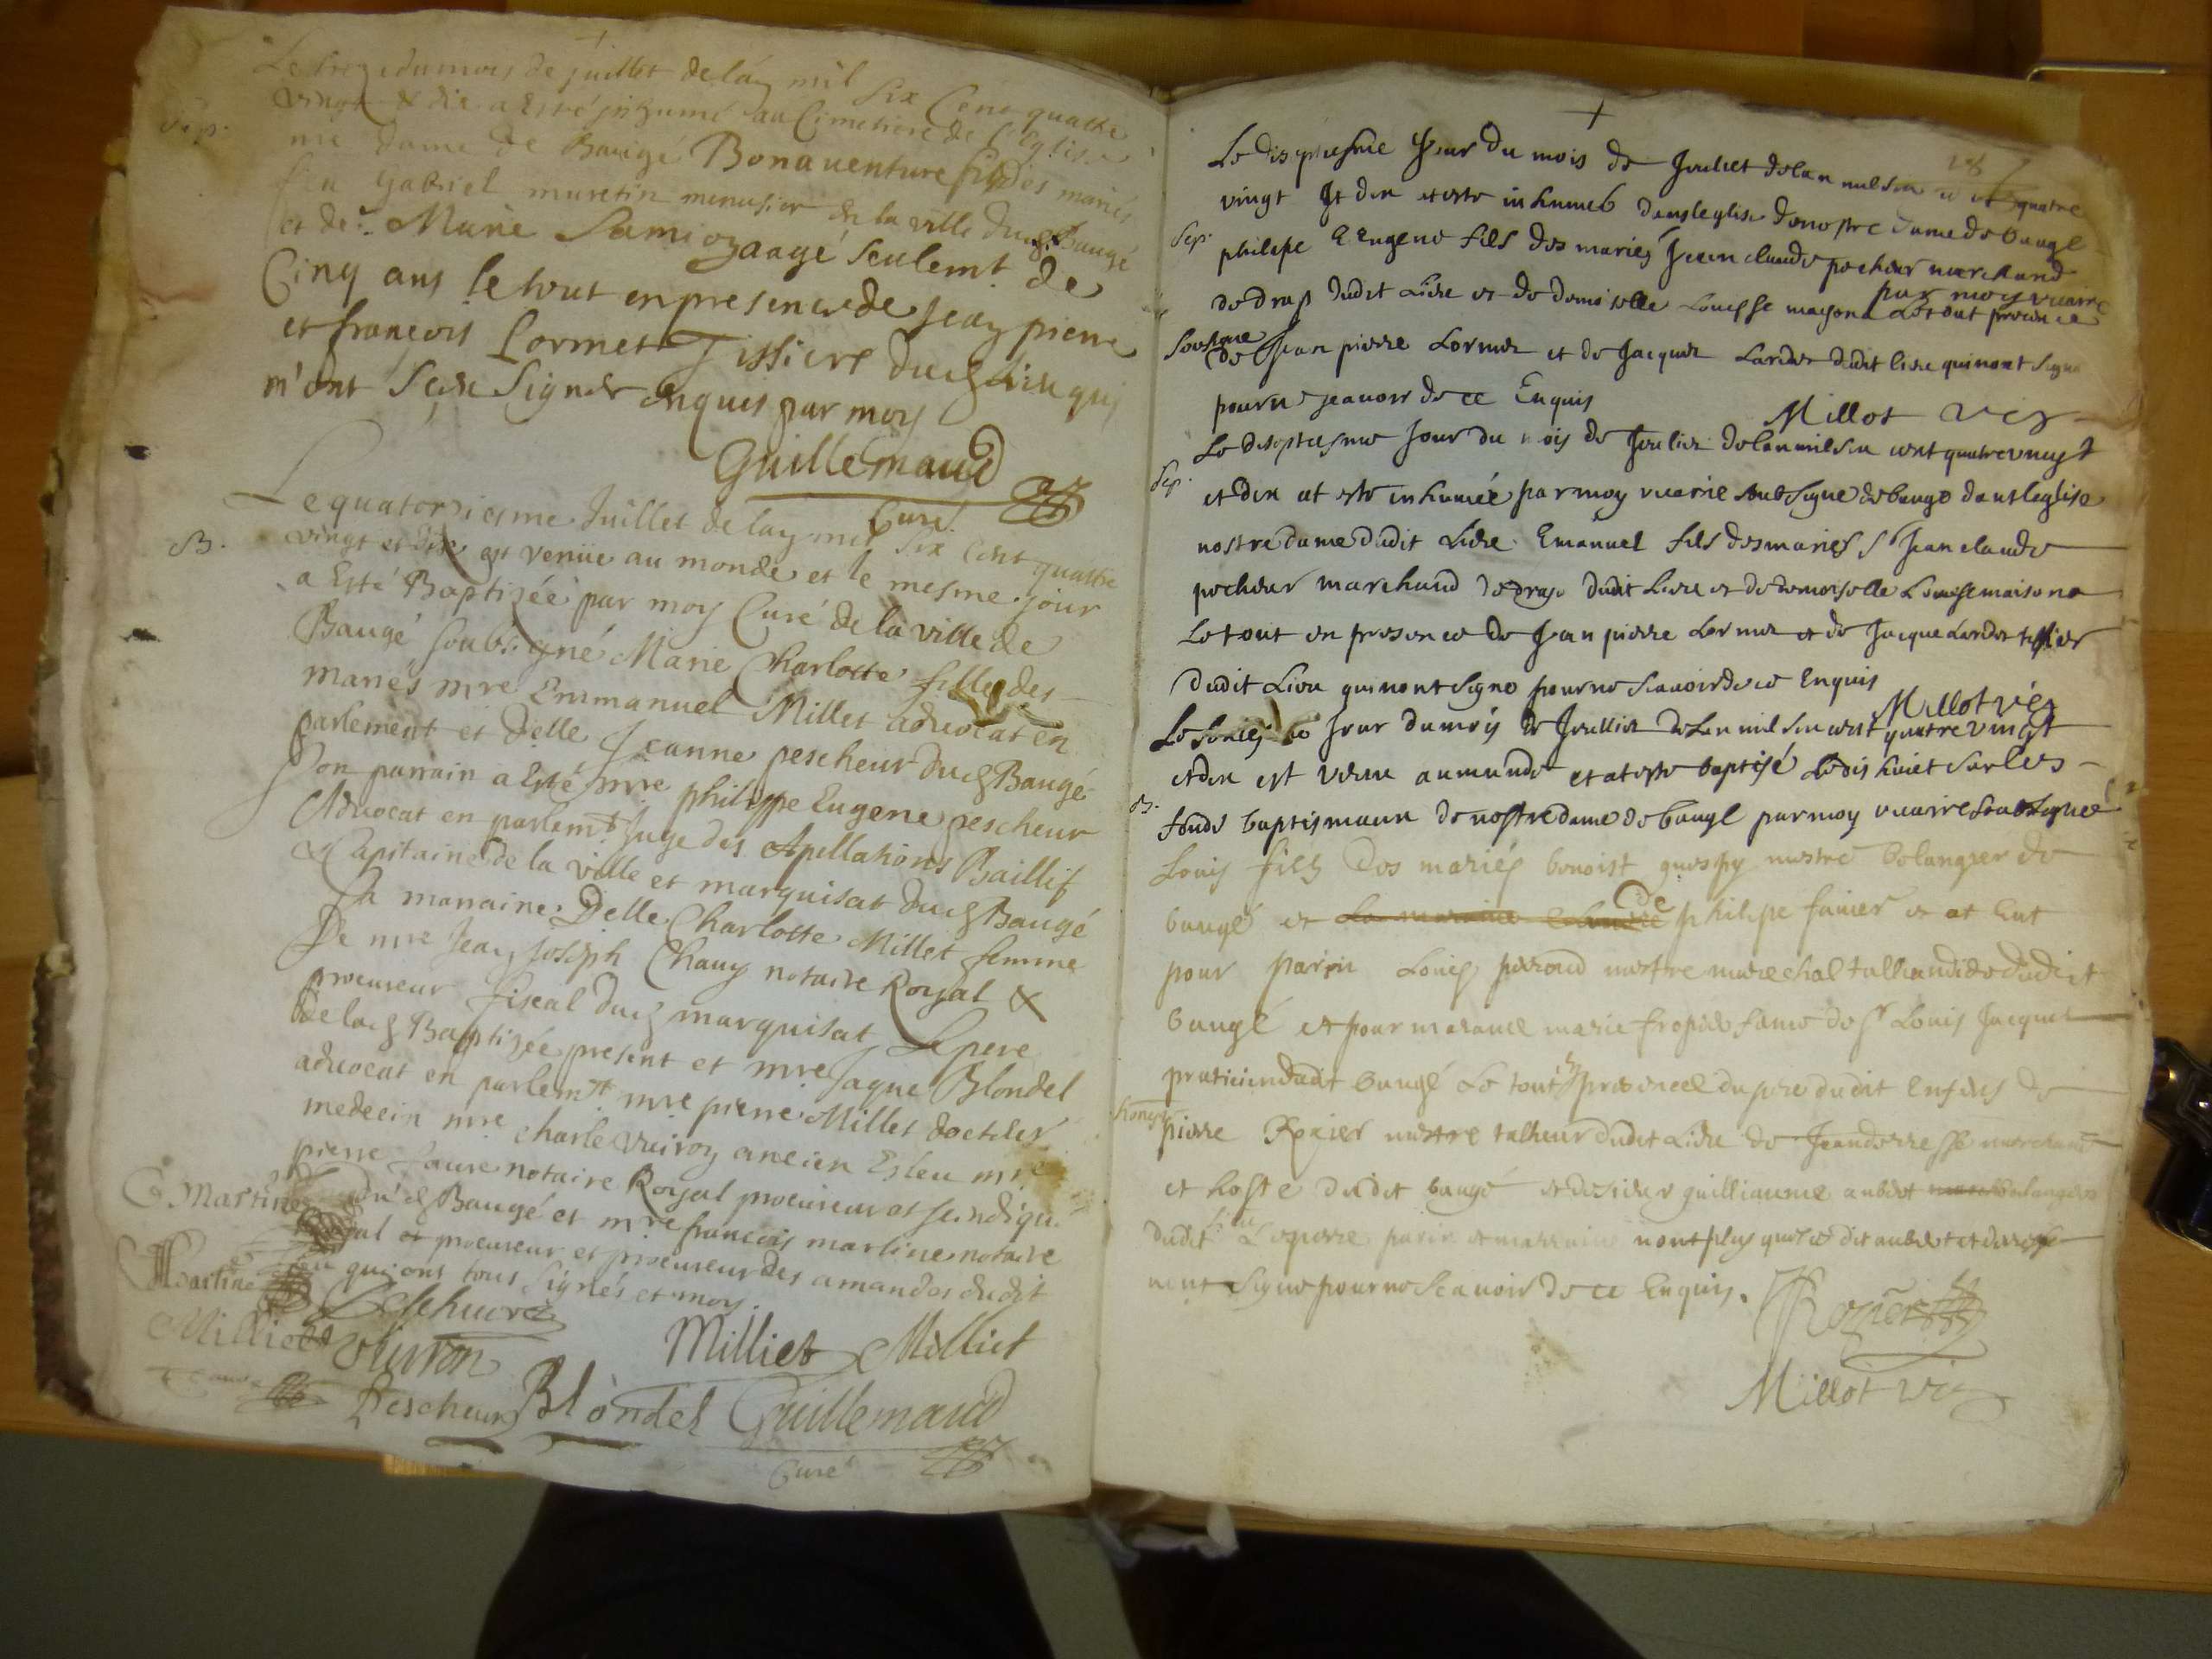 Le treze du mois de juillet de lan mil six Cent quattre
vingt & dix a Esté inhumé au Cimetiere de l'Eglise
Sep.
nre dame de Baugé Bonauenture fils des mariés
feu Gabriel muretin menusier de la ville dud Baugé
et de Marie aagé seulemt. de
Cinq ans le tout en presence de jean pierre
et françois Lormet Tissiers dud Lieu qui
n'ont sceu Signer enquis par moy
Guillemaud
Curé.
Le quatorziesme Juillet de lan mil Six Cent quattre
B.
vingt et dix est venüe au monde et le mesme jour
a Esté Baptizée par moy Curé de la ville de
Baugé soubsigné Marie Charlotte fille des
mariés mre Emmanuel Millet aduocat en
parlement et Delle Jeanne pescheur dud Baugé
Son parrain a Esté mre philippe Eugene pescheur
Aduocat en parlemt Juge des Apellations Baillif
& Capitaine de la ville et marquisat dud Baugé
Sa marraine Delle Charlotte Millet femme
De mre Jean Joseph Chauy notaire Royal &
procureur fiscal dud marquisat Le pere
de lad Baptizée present et mre Jaque Blondel
aduocat en parlemt mre pierre Millet docteur
medecin mre charle Vuiron ancien Esleu mre
pierre faure notaire Royal procureur et scindiqu
dud Baugé et mre francois martine notaire
Royal et procureur et procureur des amandes dudit
lieu qui ont tous signés et moy.
C Martine
Martine
Milliet Vuiron
Milliet Milliet
Pescheur Blondel Guillemaud
Curé
Le disseptiesme Jour du mois de Jeuliet de lan mil six cent quatre
vingt Et dix at esté inhumé dans leglise de nostre dame de baugé
Sep.
philipe Eugene fils des mariés Jean claude pecheur marchand
par moy vicaire
de drap dudit Lieu et de demoiselle Louisse maisona Le tout presence
Soussigne
de Jean pierre Lormez et de Jacques Lardet dudit lieu qui nont signe
pour ne sçavoir de ce Enquis
Millot vic
Le diseptiesme Jour du mois de Jeuliez de lan mil six cent quatre vingt
Sep.
et dix at esté inhumée par moy vicaire soubsigne de bauge dans leglise
nostre dame dudit Lieu Emanuel fils des mariés Sr Jean claude
pecheur marchand de drap dudit Lieu et de demoiselle Louisse maisona
Le tout en presence de Jean pierre Lormez et de Jacque Lardet tissier
dudit Lieu qui nont signe pour ne scauoir de ce Enquis
Millot vic
Le Jour du mois de Jeullier de lan mil six cent quatre vingt
et dix est venu au monde et at este baptisé Le dis huiet sur les
B.
fonds baptismaux de nostre dame de baugé par moy vicaire soubsigné
Louis fils des mariés benoist guespy mestre bolangier de
baugé et de philipe et at Eut
pour parin Louis peraud mestre marechal talliandie dudit
baugé et pour maraine marie fropie fame de sr Louis Jacquet
praticien dudit baugé Le tout en presence du pere dudit enfans de
honeste
pierre Rogier mestre talheur dudit Lieu de Jean marchand
et hoste dudit baugé et de sieur guilliaume aubret bolangier
dudit lieu Le pere parin et marraine nont plus que le dit aubret et
nont signe pour ne scavoir de ce Enquis.
Rogier
Millot vic